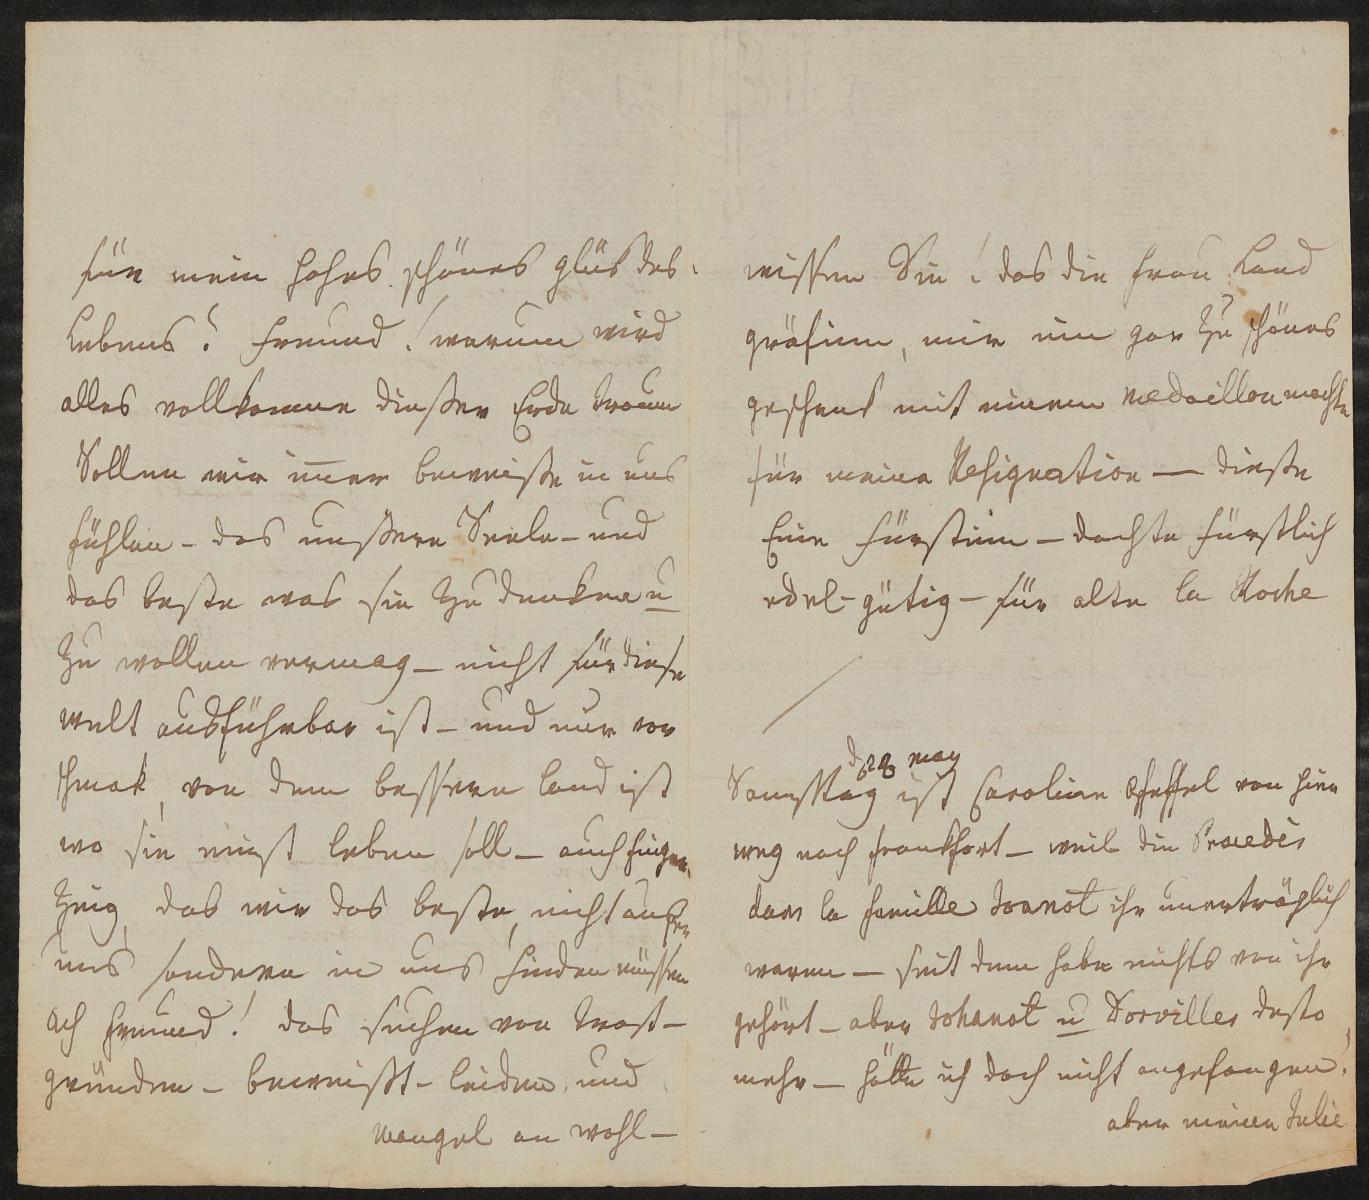 für mein hohes schönes glük des
Lebens? Freund! warum wird
alles vollkomne dießer Erde traum
Sollen wir immer beweiße in uns
fühlen – das unßere Seele – und
das beste was sie zu denken u
zu wollen vermag – nicht für diese
welt ausführbar ist – und nur vor
schmak, von dem bessern land ist
wo sie einst leben soll – auch finger
zeig, das wir das beste, nicht außer
uns sondern in uns finden müssen
ach Freund! das suchen von trost–
gründen – beweißt – leiden, und
mangel an wohl –
wissen Sie! das die Frau Land
gräfinn, mir ein gar zu schönes
geschenk mit einem medaillon machte
für meine Resignation — dieße
Eine Fürstinn – dachte fürstlich
edel – gütig – für alte la Roche
d 28 may
Samsttag ist Caroline Pfeffel von hier
weg nach frankfort – weil die Procedés
dans la famille Joanot ihr unerträglich
waren — seit dem habe nichts von ihr
gehört – aber Johanot u Dorville desto
mehr — hätte ich doch nicht angefangen!
aber meine Julie